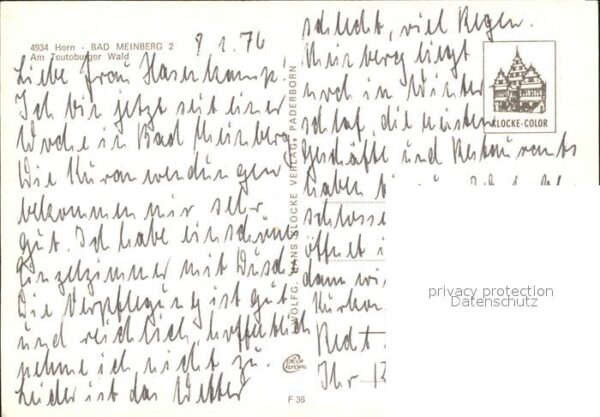 4934 Horn - BAD MEINBERG 2
Am Teutoburger Wald
8 1.76
Liebe Frau Hasenkamp!
Ich bin jetzt seit einer
Woche in Bad Meinberg
Die Kuranwendungen
bekommen mir sehr
gut. Ich habe ein schönes
Einzelzimmer mit Dusch
Die Verpflegung ist gut
und reichlich, hoffentlich
nehme ich nicht zu.
Leider ist das Wetter
schlecht, viel Regen.
Meinberg liegt
noch im Winter
schlaf, die meisten
Geschäfte und Restaurants
haben
schlosse
öffnet
dann wi
Kurkon
Redt
Ihr
WOLFG. HANS KLOCKE VERLAG, PADERBORN
KLOCKE-COLOR
F 36
privacy protection
Datenschutz